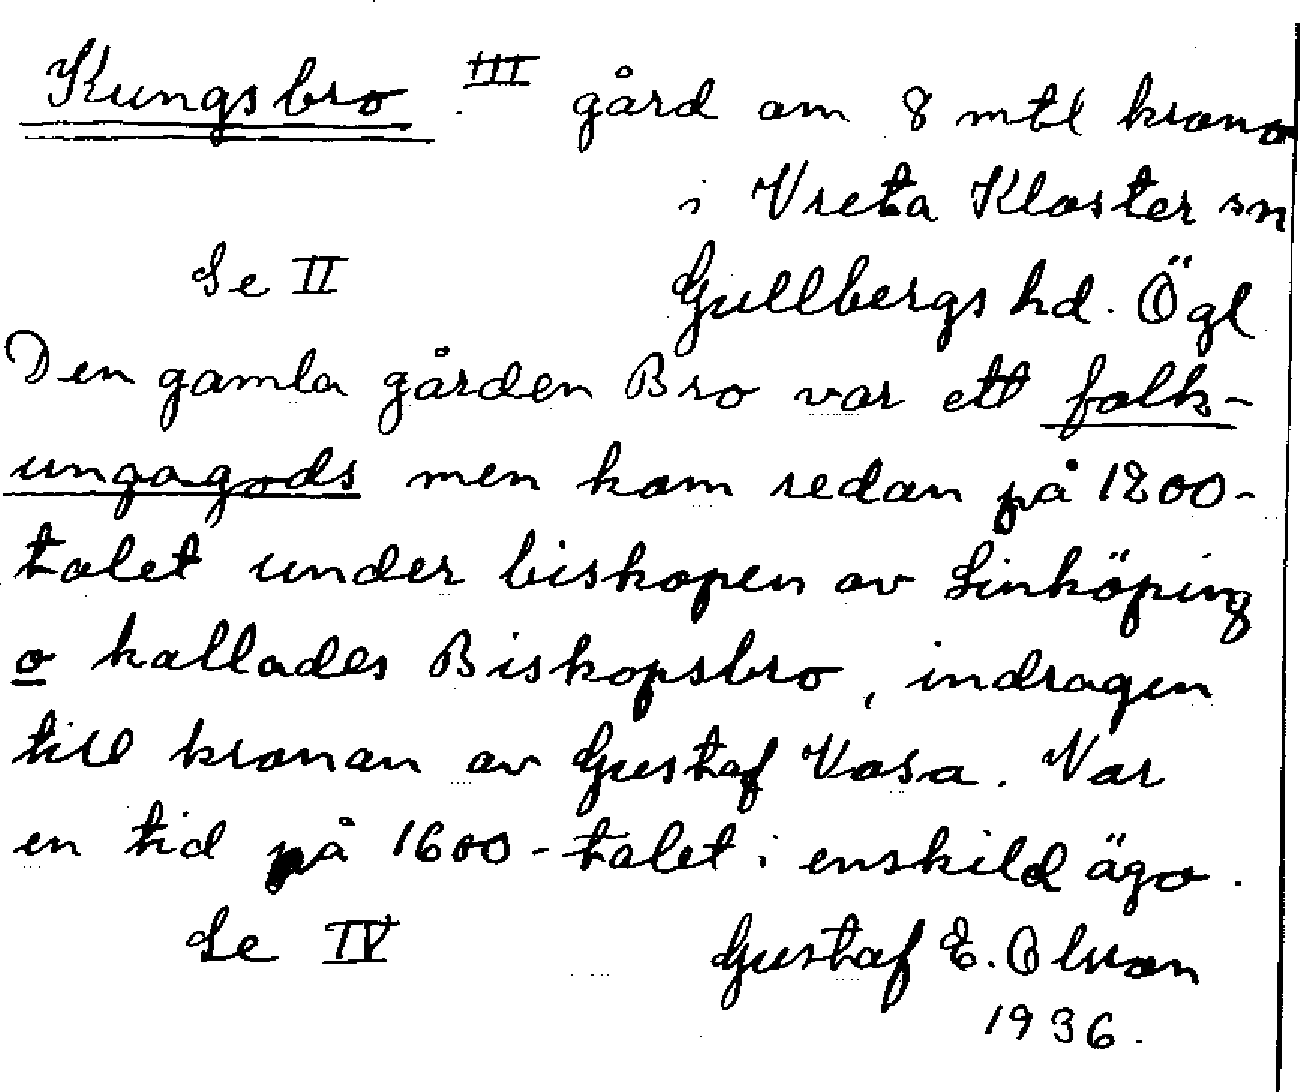 Kungsbro III gård om 8 mtl krono
i Vreta Kloster sn
Se II Gullbergs hd. Ögl
Den gamla gården Bro var ett folk-
ungagods men kom redan på 1200-
talet under biskopen av Linköping
o kallades Biskopsbro, indragen
till kronan av Gustaf Vasa. Var
en tid på 1600-talet i enskild ägo.
Se IV Gustaf E. Olsson
1936.